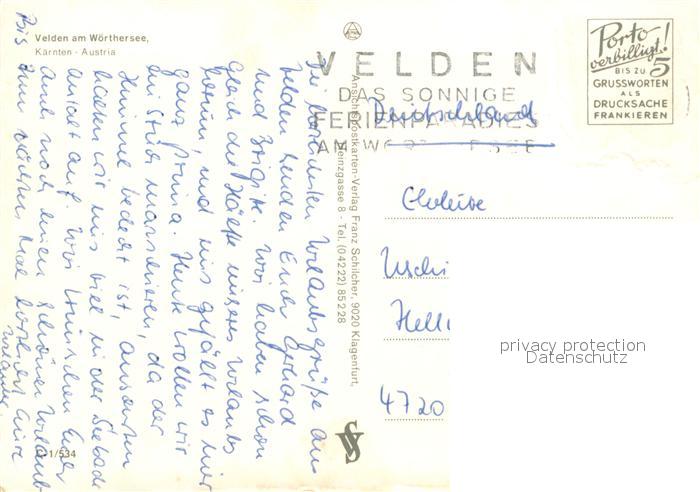 Velden am Wörthersee,
Kärnten - Austria
Die herzlichsten Urlaubsgrüße aus
Velden senden Euch Gerhard
und Brigitte. Wir haben schon
gleich die Hälfte unseres Urlaubs
herum, und uns gefällt es hier
ganz prima. Heute wollen wir
ein Stück marschieren, da der
Himmel bedeckt ist, ansonsten
halten wir uns viel in der Seebade-
anstalt auf. Wir wünschen Euch
auch noch einen schönen Urlaub
Bis zum nächsten Mal herzlichst Eure
Urlauber
C-1/534
Ansichtspostkarten-Verlag Franz Schilcher, 9020 Klagenfurt,
Heinzgasse 8 - Tel. (04222) 85228
VELDEN
DAS SONNIGE
FERIENPARADIES
AM WÖRTHERSEE
Porto-
verbilligt!
BIS ZU 5
GRUSSWORTEN
ALS
DRUCKSACHE
FRANKIEREN
Deutschland
Uschi
4720
privacy protection
Datenschutz